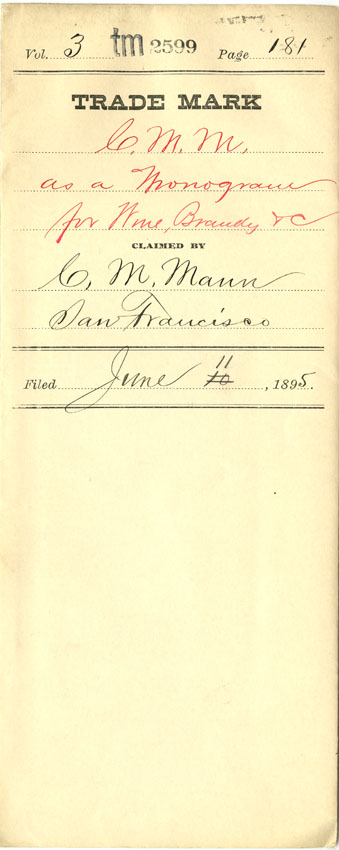 Vol. 3 tm 2599 Page 181
TRADE MARK
C. M. M.
as a Monogram
for Wine, Brandy &C
CLAIMED BY
C. M. Mann
San Francisco
Filed June 11 10, 1895.